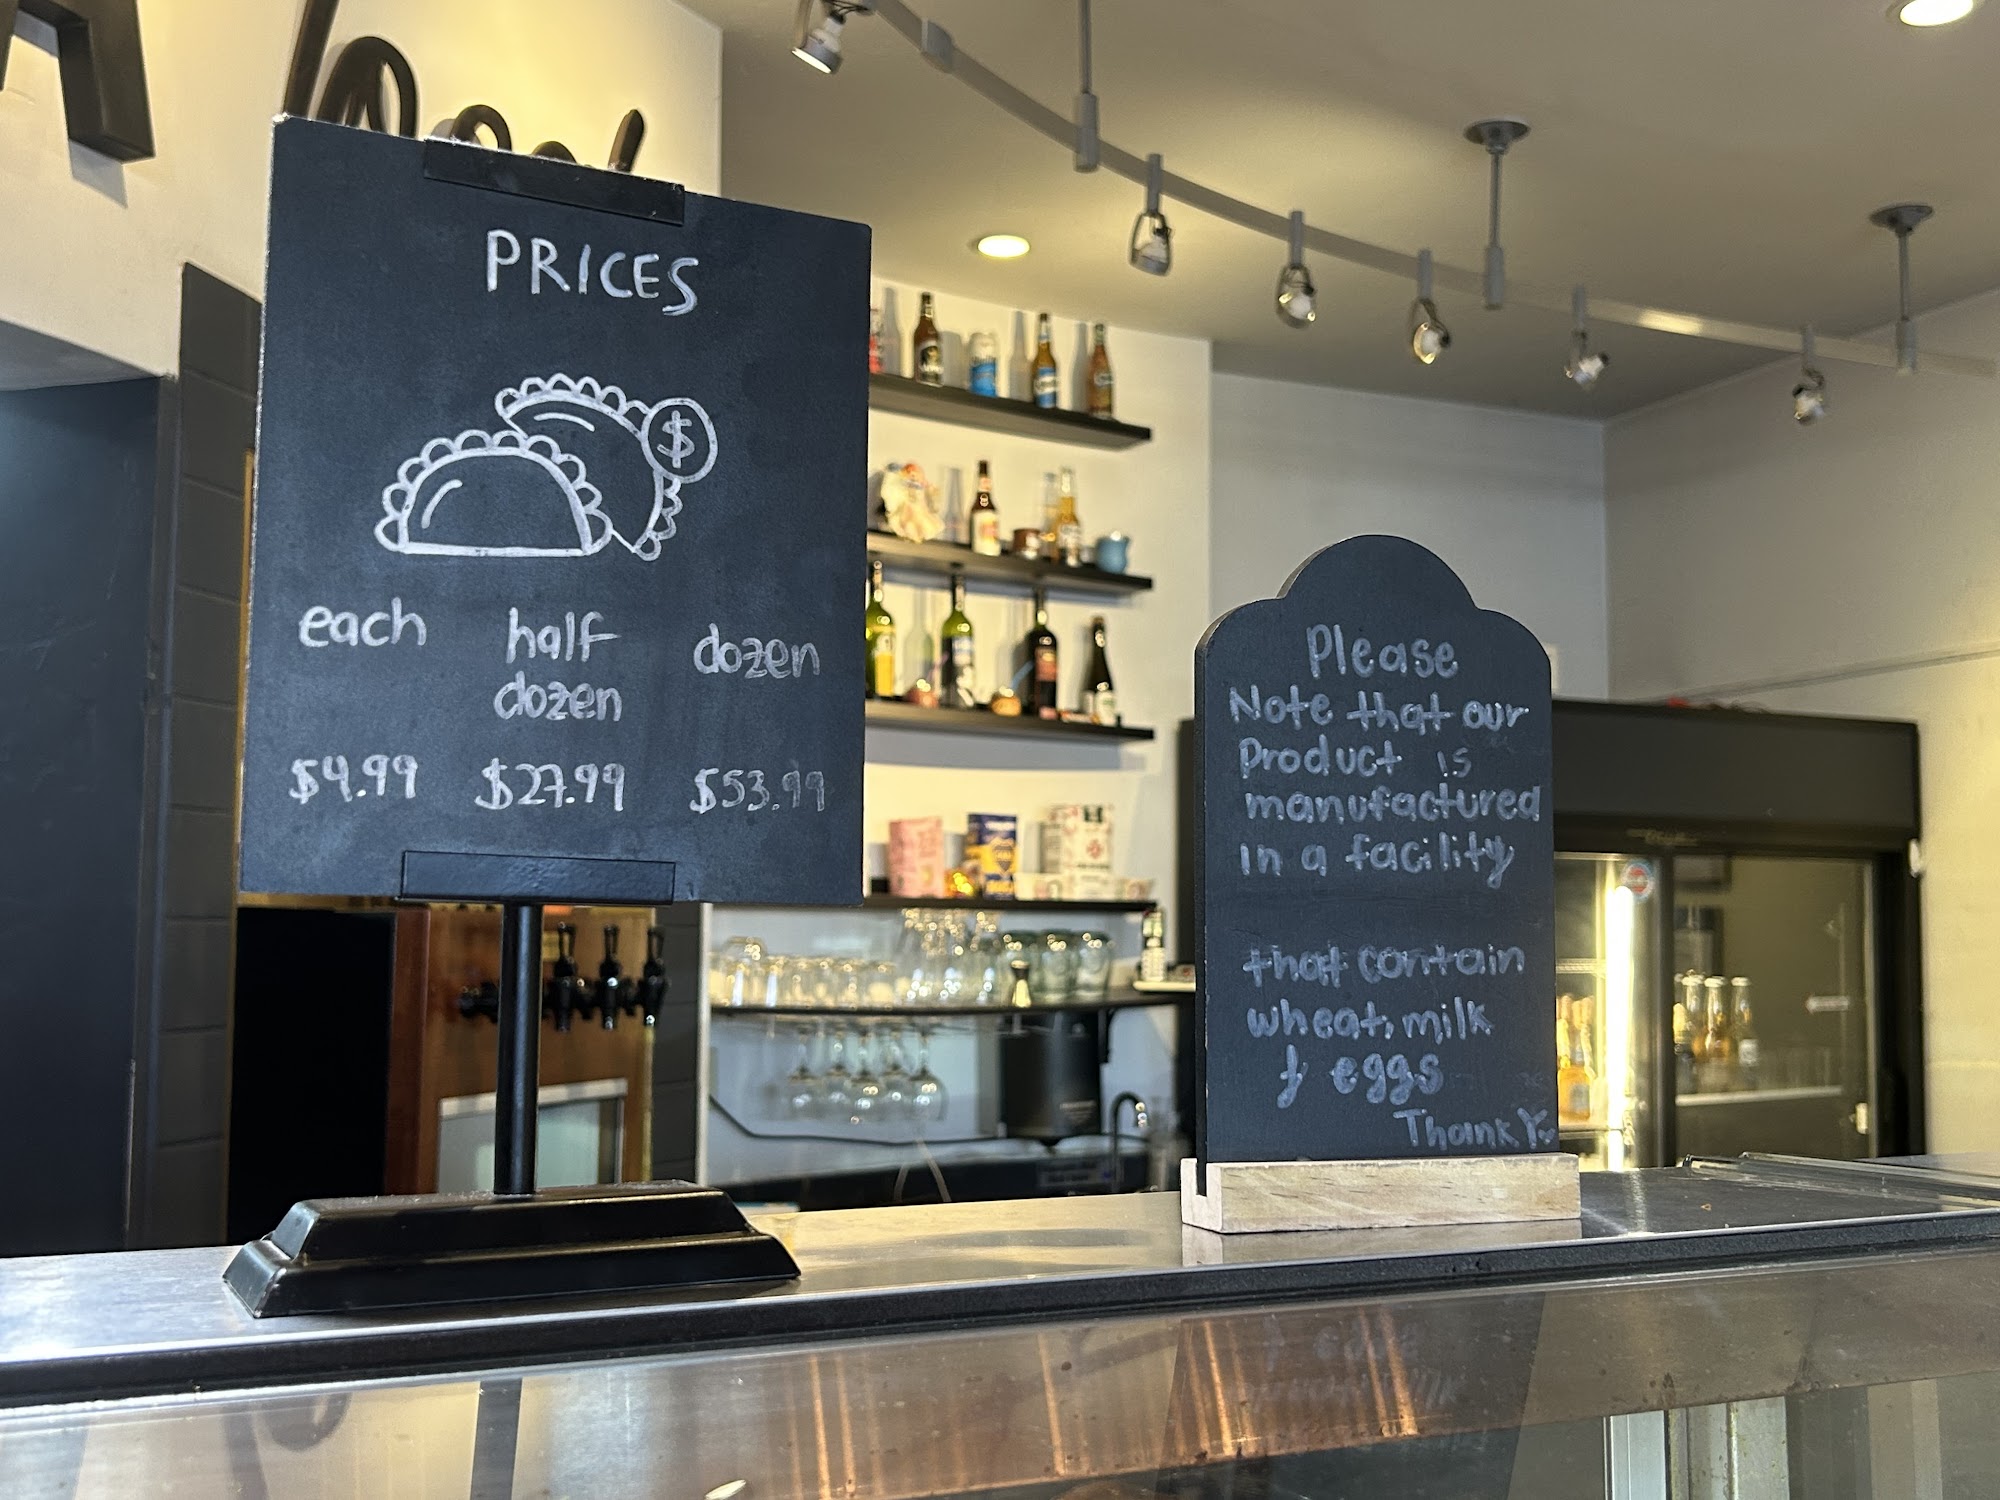 PRICES
$
each
half
dozen
dozen
$4.99
$27.99
$53.99
Please
Note that our
Product is
manufactured
in a facility
that contain
wheat, milk
& eggs
Thank Y